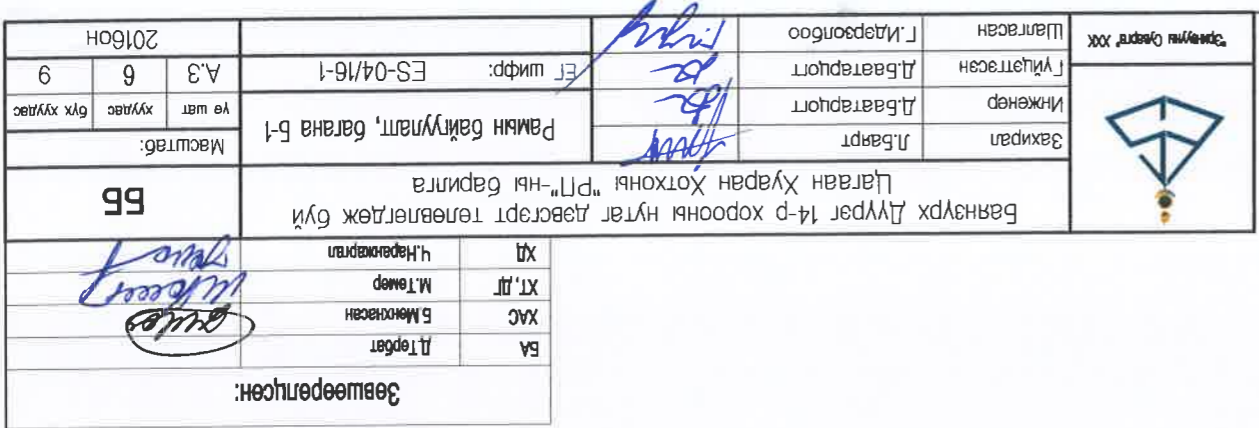 Зөвшөөрөлцсөн:
БА Д.Төрбат
ХАС Б.Мөнхнасан
ХТ, ДГ М.Төмөр
ХД Ч.Наранжаргал
"Эринжууны Суварга" ХХК
Баянзүрх Дүүрэг 14-р хорооны нутаг дэвсгэрт төлөвлөгдөж буй
Цагаан Хуаран Хотхоны "РП"-ны барилга
ББ
Захирал Л.Баярт
Инженер Д.Баатарцогт
Гүйцэтгэсэн Д.Баатарцогт
Шалгасан Г.Идэрзонбоо
Рамын байгуулалт, багана Б-1
ЕГ шифр: ES-04/16-1
Масштаб:
үе шат хуудас бүх хуудас
А.З 6 9
2016он